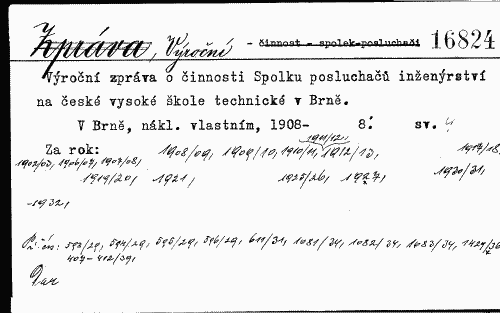 Zpráva, Výroční - činnost - spolek-posluchači 16824
Výroční zpráva o činnosti Spolku posluchačů inženýrství
na české vysoké škole technické v Brně.
V Brně, nákl. vlastním, 1908- 8° sv. 4
1911/12,
Za rok: 1908/09, 1909/10, 1910/11, 1912/13, 1917/18,
1902/03, 1906/07, 1907/08,
1919/20, 1921, 1925/26, 1927, 1930/31,
-1932,
Př. čís: 593/29, 594/29, 595/29, 596/29, 611/31, 1081/34, 1082/34, 1083/34, 1427/36
409-412/39,
Dar